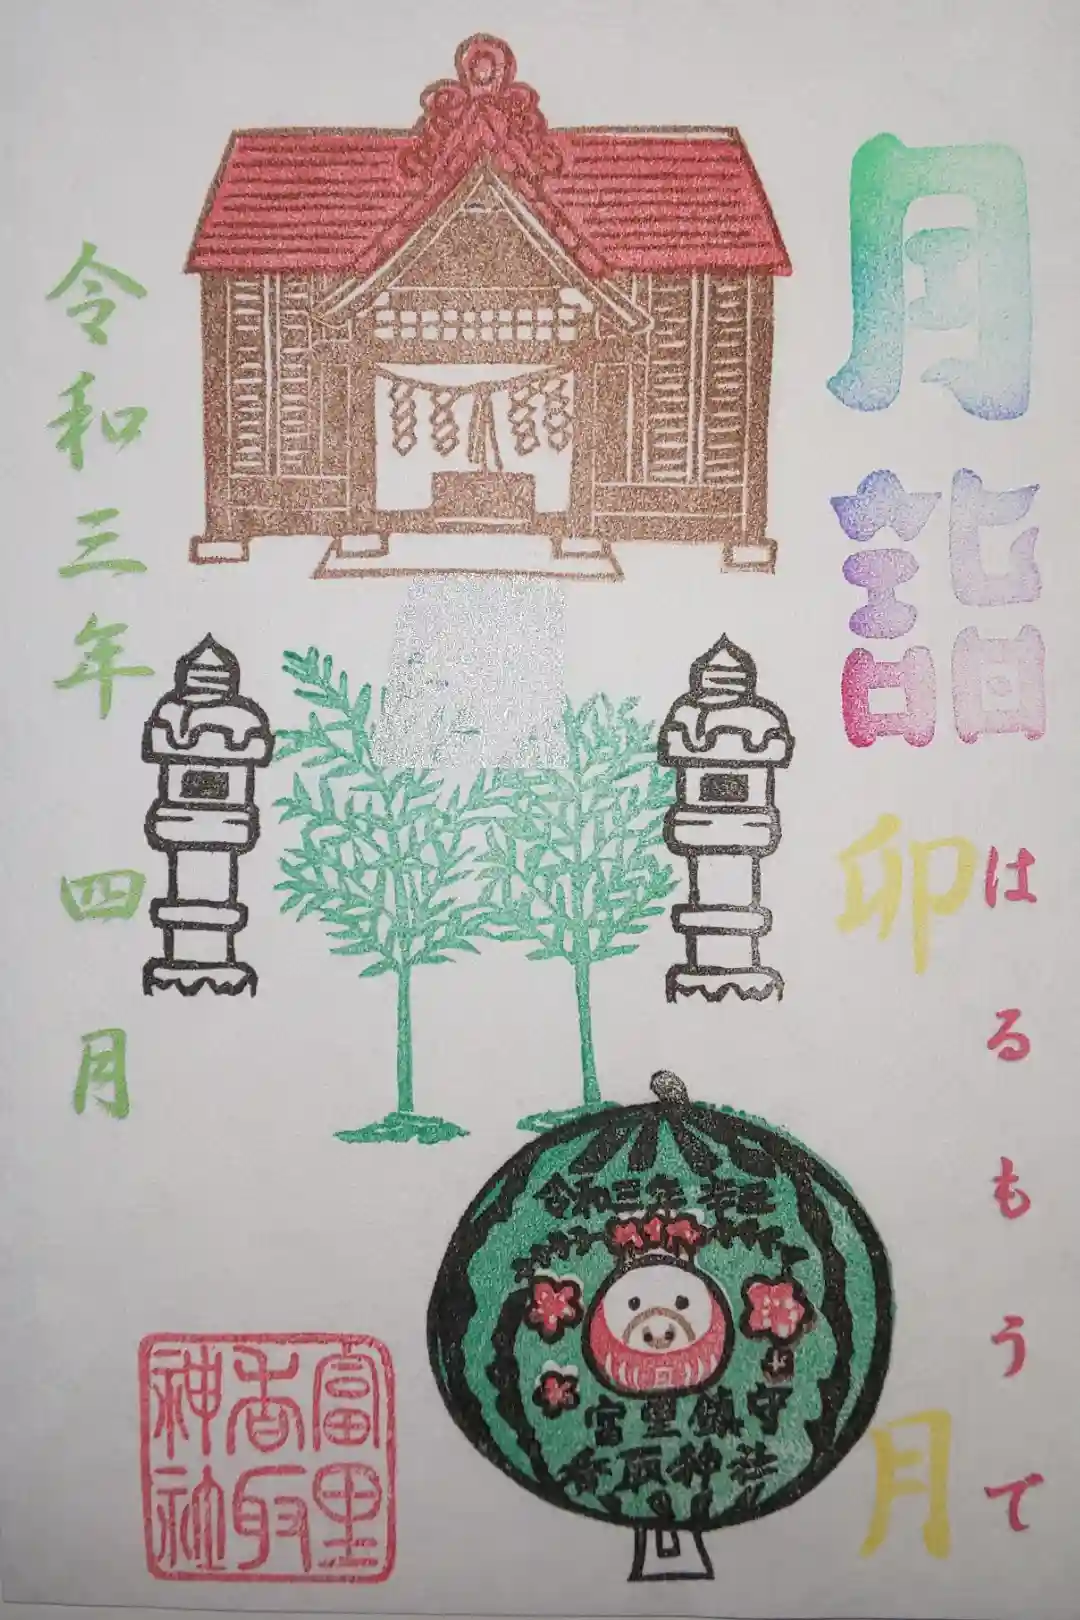 月詣
はるもうで
卯月
令和三年 四月
令和三年
富里鎮守
香取神社
富里
香取
神社